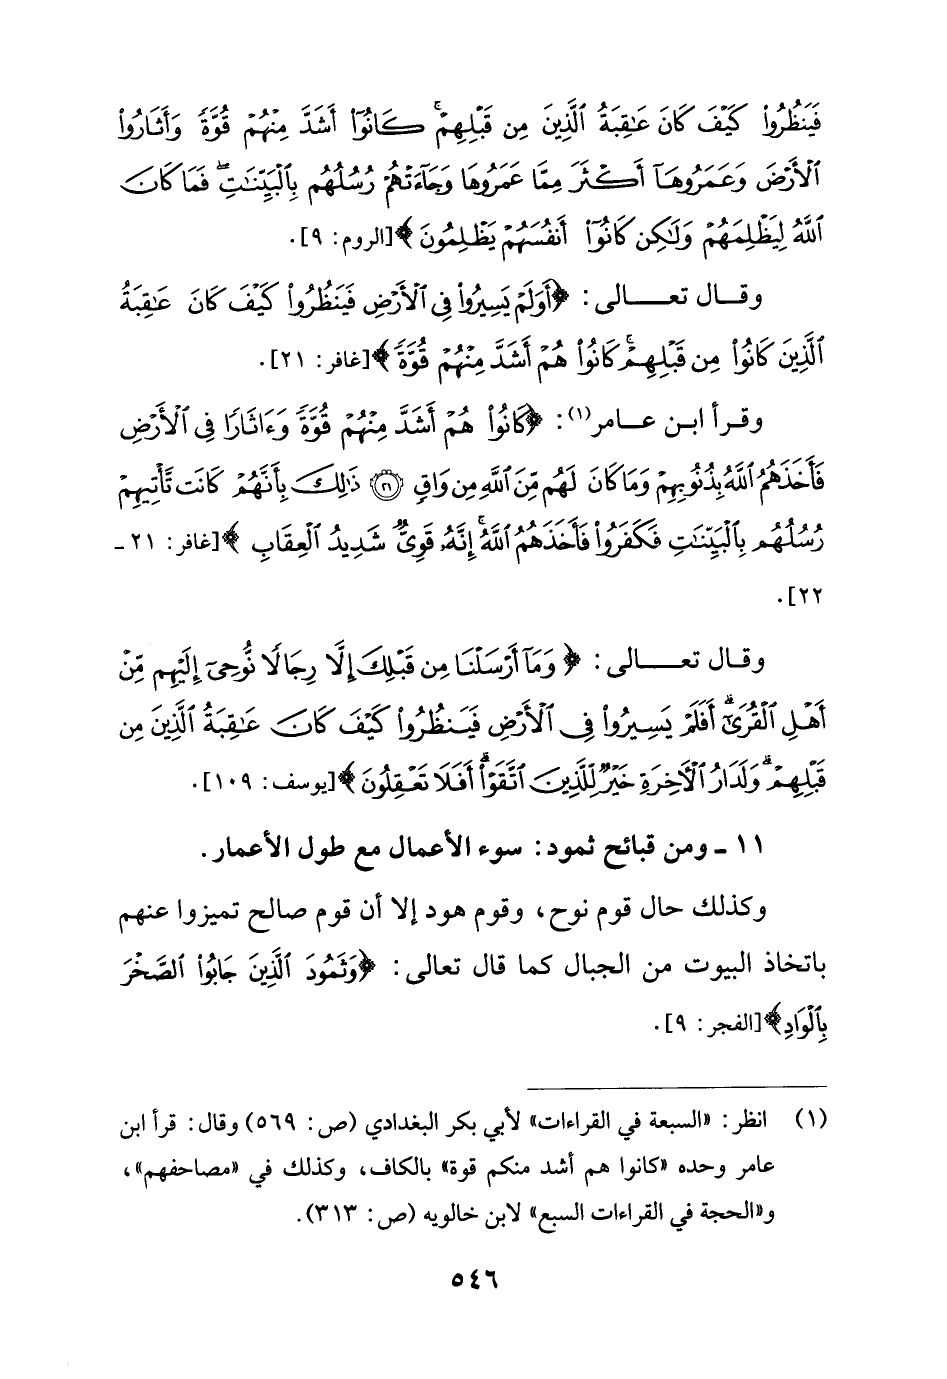 فَيَنظُرُوا۟ كَيْفَ كَانَ عَٰقِبَةُ ٱلَّذِينَ مِن قَبْلِهِمْ ۚ كَانُوٓا۟ أَشَدَّ مِنْهُمْ قُوَّةً وَأَثَارُوا۟
ٱلْأَرْضَ وَعَمَرُوهَآ أَكْثَرَ مِمَّا عَمَرُوهَا وَجَآءَتْهُمْ رُسُلُهُم بِٱلْبَيِّنَٰتِ ۖ فَمَا كَانَ
ٱللَّهُ لِيَظْلِمَهُمْ وَلَٰكِن كَانُوٓا۟ أَنفُسَهُمْ يَظْلِمُونَ﴾ [الروم: ٩].
وقال تعالى: ﴿أَوَلَمْ يَسِيرُوا۟ فِى ٱلْأَرْضِ فَيَنظُرُوا۟ كَيْفَ كَانَ عَٰقِبَةُ
ٱلَّذِينَ كَانُوا۟ مِن قَبْلِهِمْ ۚ كَانُوا۟ هُمْ أَشَدَّ مِنْهُمْ قُوَّةً﴾ [غافر: ٢١].
وقرأ ابن عامر(١): ﴿كَانُوا۟ هُمْ أَشَدَّ مِنْهُمْ قُوَّةً وَءَاثَارًا فِى ٱلْأَرْضِ
فَأَخَذَهُمُ ٱللَّهُ بِذُنُوبِهِمْ وَمَا كَانَ لَهُم مِّنَ ٱللَّهِ مِن وَاقٍ (٢١) ذَٰلِكَ بِأَنَّهُمْ كَانَت تَّأْتِيهِمْ
رُسُلُهُم بِٱلْبَيِّنَٰتِ فَكَفَرُوا۟ فَأَخَذَهُمُ ٱللَّهُ ۚ إِنَّهُۥ قَوِىٌّ شَدِيدُ ٱلْعِقَابِ﴾ [غافر: ٢١ ـ
٢٢].
وقال تعالى: ﴿وَمَآ أَرْسَلْنَا مِن قَبْلِكَ إِلَّا رِجَالًا نُّوحِىٓ إِلَيْهِم مِّنْ
أَهْلِ ٱلْقُرَىٰٓ ۗ أَفَلَمْ يَسِيرُوا۟ فِى ٱلْأَرْضِ فَيَنظُرُوا۟ كَيْفَ كَانَ عَٰقِبَةُ ٱلَّذِينَ مِن
قَبْلِهِمْ ۗ وَلَدَارُ ٱلْءَاخِرَةِ خَيْرٌ لِّلَّذِينَ ٱتَّقَوْا۟ ۗ أَفَلَا تَعْقِلُونَ﴾ [يوسف: ١٠٩].
١١ ـ ومن قبائح ثمود: سوء الأعمال مع طول الأعمار.
وكذلك حال قوم نوح، وقوم هود إلا أن قوم صالح تميزوا عنهم
باتخاذ البيوت من الجبال كما قال تعالى: ﴿وَثَمُودَ ٱلَّذِينَ جَابُوا۟ ٱلصَّخْرَ
بِٱلْوَادِ﴾ [الفجر: ٩].
(١) انظر: «السبعة في القراءات» لأبي بكر البغدادي (ص: ٥٦٩) وقال: قرأ ابن
عامر وحده «كانوا هم أشد منكم قوة» بالكاف، وكذلك في «مصاحفهم»،
و«الحجة في القراءات السبع» لابن خالويه (ص: ٣١٣).
٥٤٦